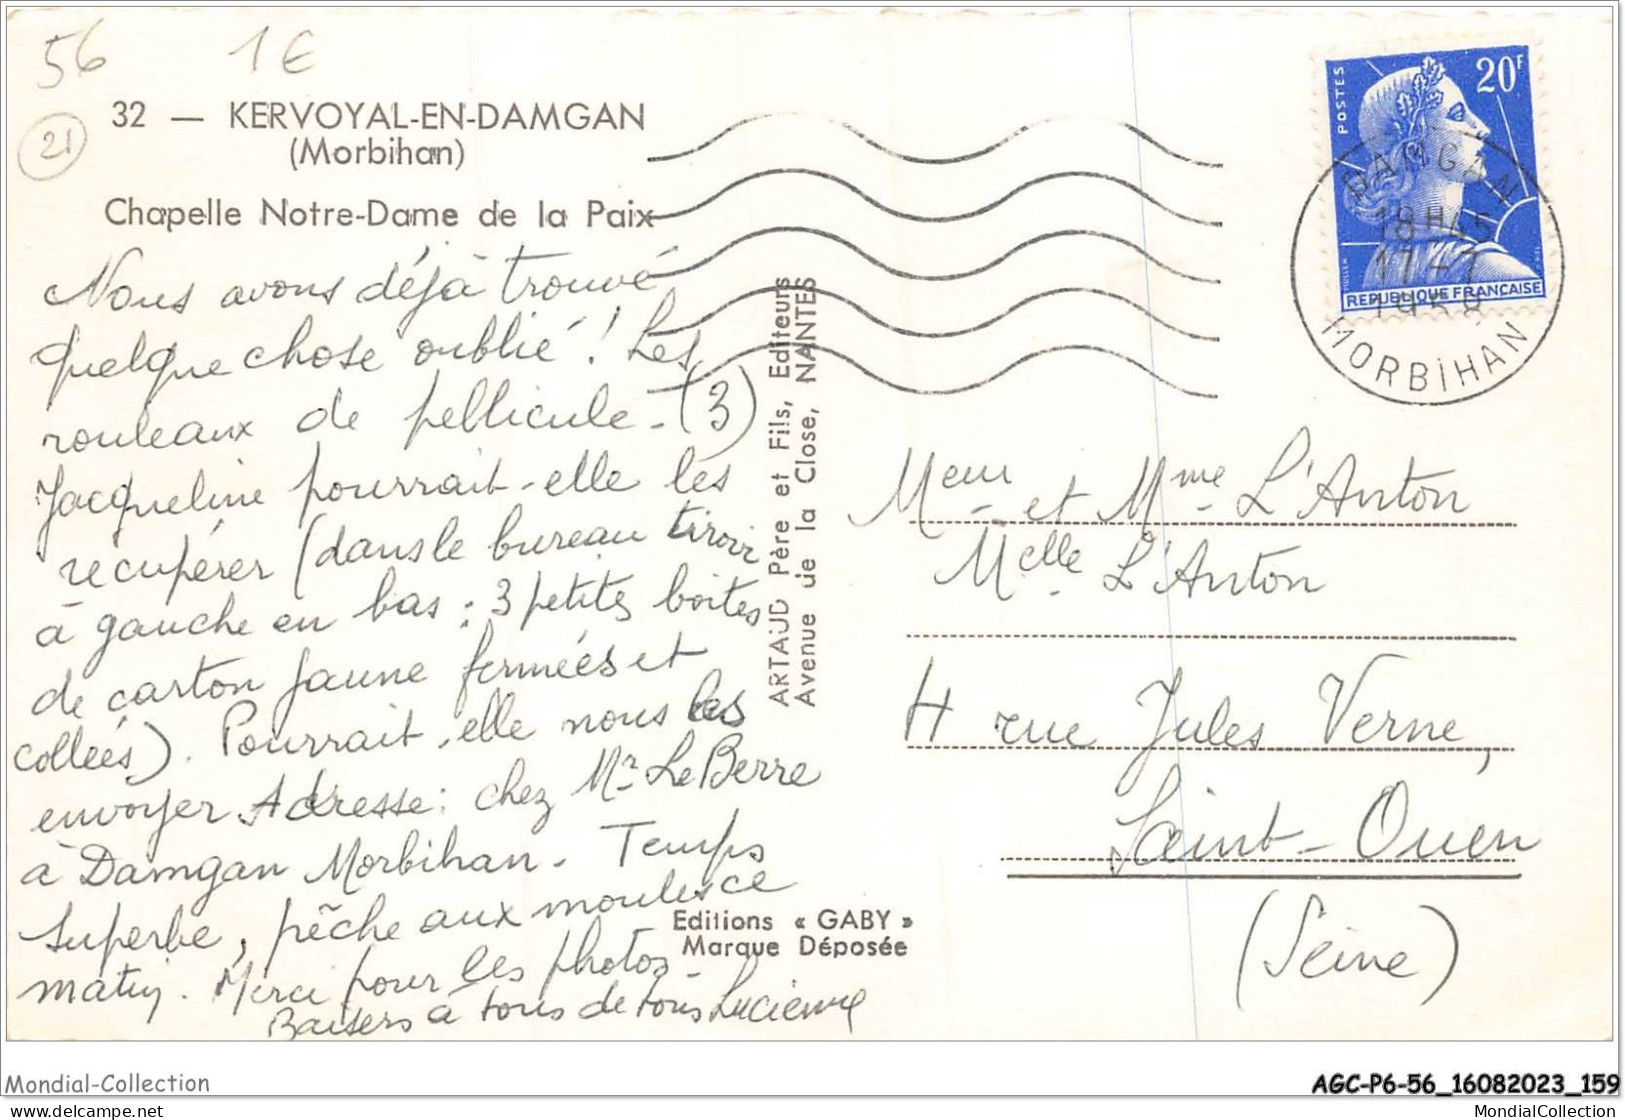 56 1€
21
32 — KERVOYAL-EN-DAMGAN
(Morbihan)
Chapelle Notre-Dame de la Paix
Nous avons déjà trouvé
quelque chose oublié ! Les
rouleaux de pellicule - (3)
Jacqueline pourrait-elle les
récupérer (dans le bureau tiroir
à gauche en bas : 3 petites boites
de carton jaune fermées et
collées). Pourrait-elle nous les
envoyer Adresse : chez Mr Le Berre
à Damgan Morbihan - Temps
superbe, pêche aux moules ce
matin. Merci pour les photos -
Baisers à tous de tous Lucienne
ARTAUD Père et Fils, Editeurs
Avenue de la Close, NANTES
Editions « GABY »
Marque Déposée
POSTES
20F
MULLER
REPUBLIQUE FRANÇAISE
DAMGAN
18H45
17-7
1958
MORBIHAN
Meur et Mme L'Anton
Melle L'Anton
4 rue Jules Verne,
Saint-Ouen
(Seine)
Mondial-Collection
AGC-P6-56_16082023_159
https://www.delcampe.net/fr
MondialCollection